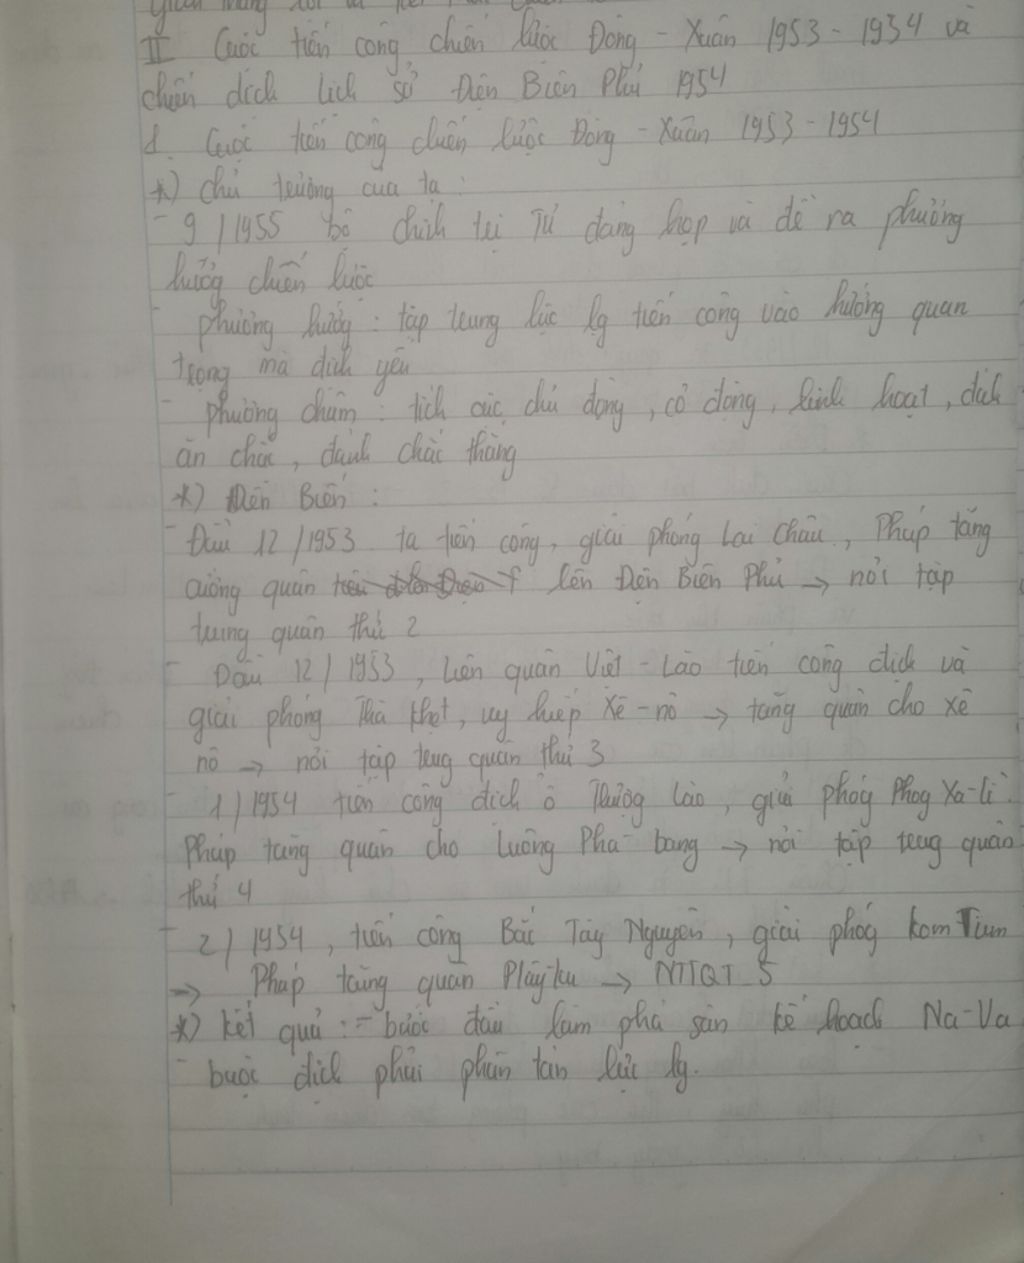 II Cuộc tiến công chiến lược Đông - Xuân 1953 - 1954 và
chiến dịch lịch sử Điện Biên Phủ 1954
1. Cuộc tiến công chiến lược Đông - Xuân 1953 - 1954
*) chủ trương của ta :
- 9 / 1955 bộ chính trị TƯ đảng họp và đề ra phương
hướg chiến lược
- phương hướg : tập trung lực lg tiến công vào hướng quan
trọng mà địch yếu
- phương châm : tích cực chủ động, cơ động, linh hoạt, đáh
ăn chắc, đánh chắc thắng
*) Diễn Biến :
- Đầu 12 / 1953 ta tiến công, giải phóng Lai Châu, Pháp tăng
cường quân lên Điện Biên Phủ → nơi tập
trung quân thứ 2
- Đầu 12 / 1953, liên quân Việt - Lào tiến công địch và
giải phóng Thà Khẹt, uy hiếp Xê - nô → tăng quân cho xê
nô → nơi tập trug quân thứ 3
- 1 / 1954 tiến công địch ở Thượg Lào, giải phóg Phog Xa - lì.
Pháp tăng quân cho Luông Pha - bang → nơi tập trug quân
thứ 4
- 2 / 1954, tiến công Bắc Tây Nguyên, giải phóg kom Tum
→ Pháp tăng quân Plâyku → NTTQT 5
*) kết quả : - bước đầu làm phá sản kế hoạch Na - Va
- buộc địch phải phân tán lực lg.